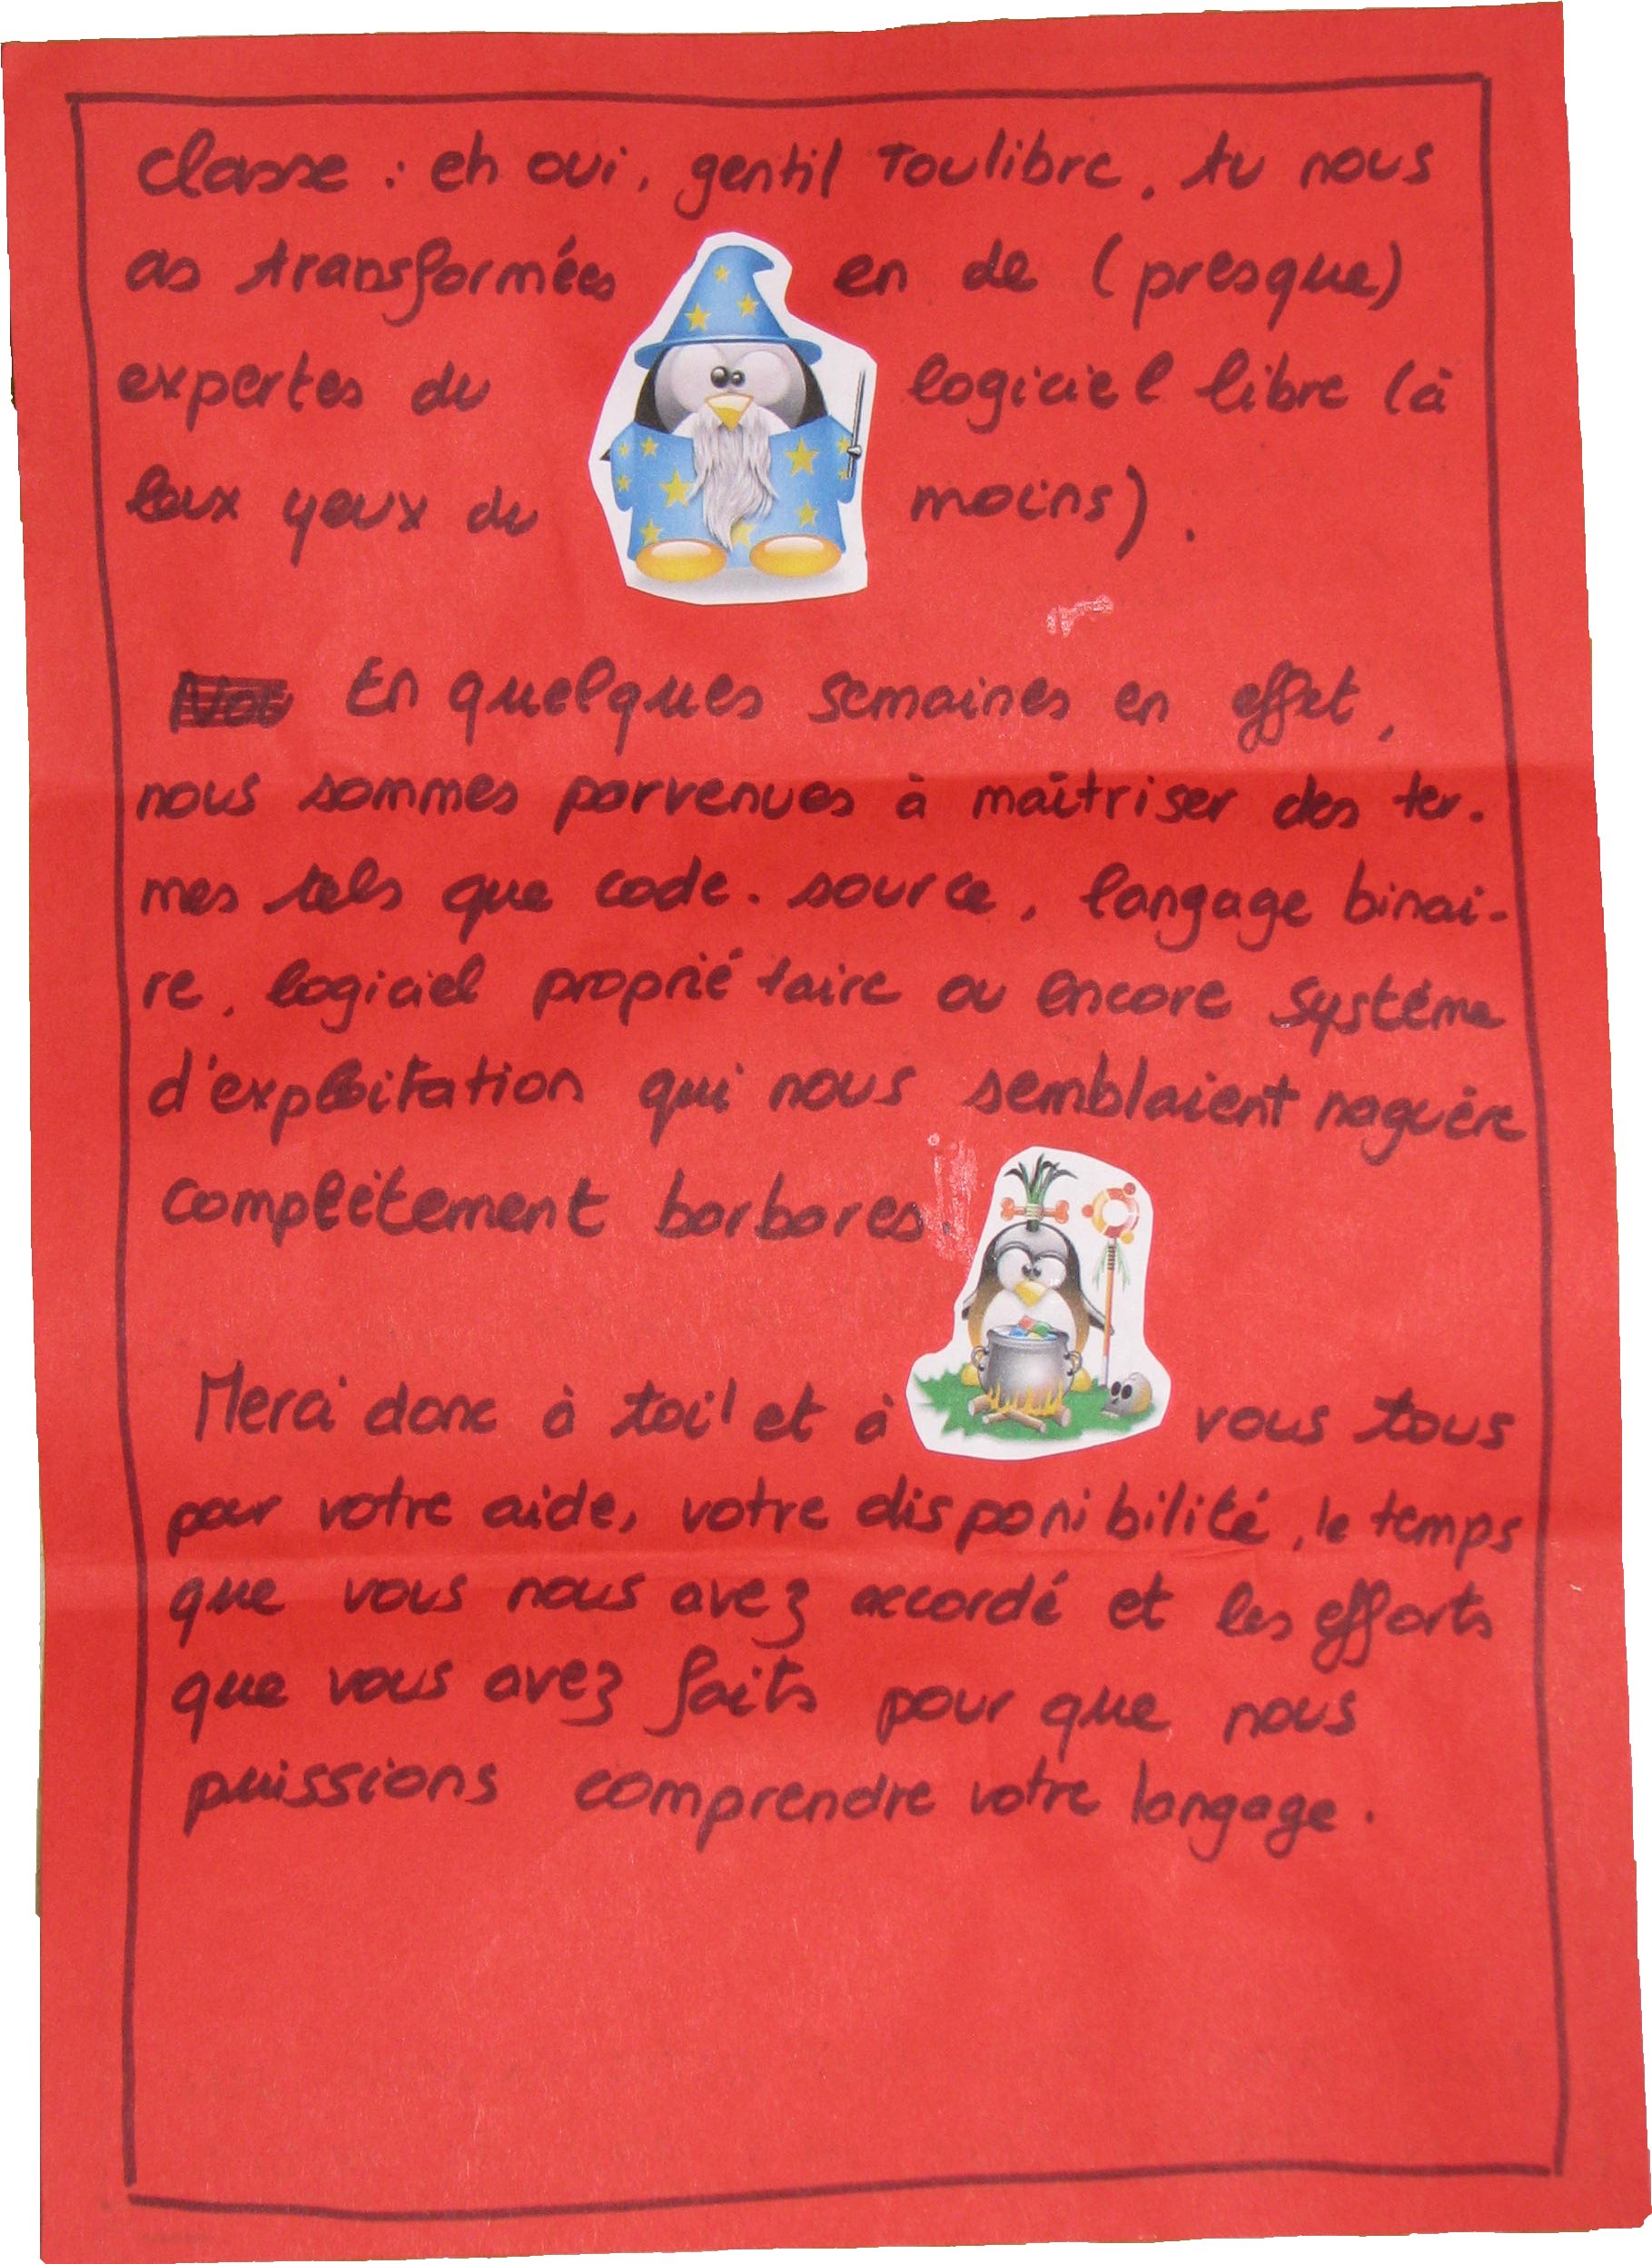 classe : eh oui, gentil Toulibre, tu nous
as transformées en de (presque)
expertes du logiciel libre (à
leux yeux du moins).
En quelques semaines en effet,
nous sommes parvenues à maîtriser des ter-
mes tels que code-source, langage binai-
re, logiciel propriétaire ou encore système
d'exploitation qui nous semblaient naguère
complètement barbares.
Merci donc à toi et à vous tous
pour votre aide, votre disponibilité, le temps
que vous nous avez accordé et les efforts
que vous avez faits pour que nous
puissions comprendre votre langage.